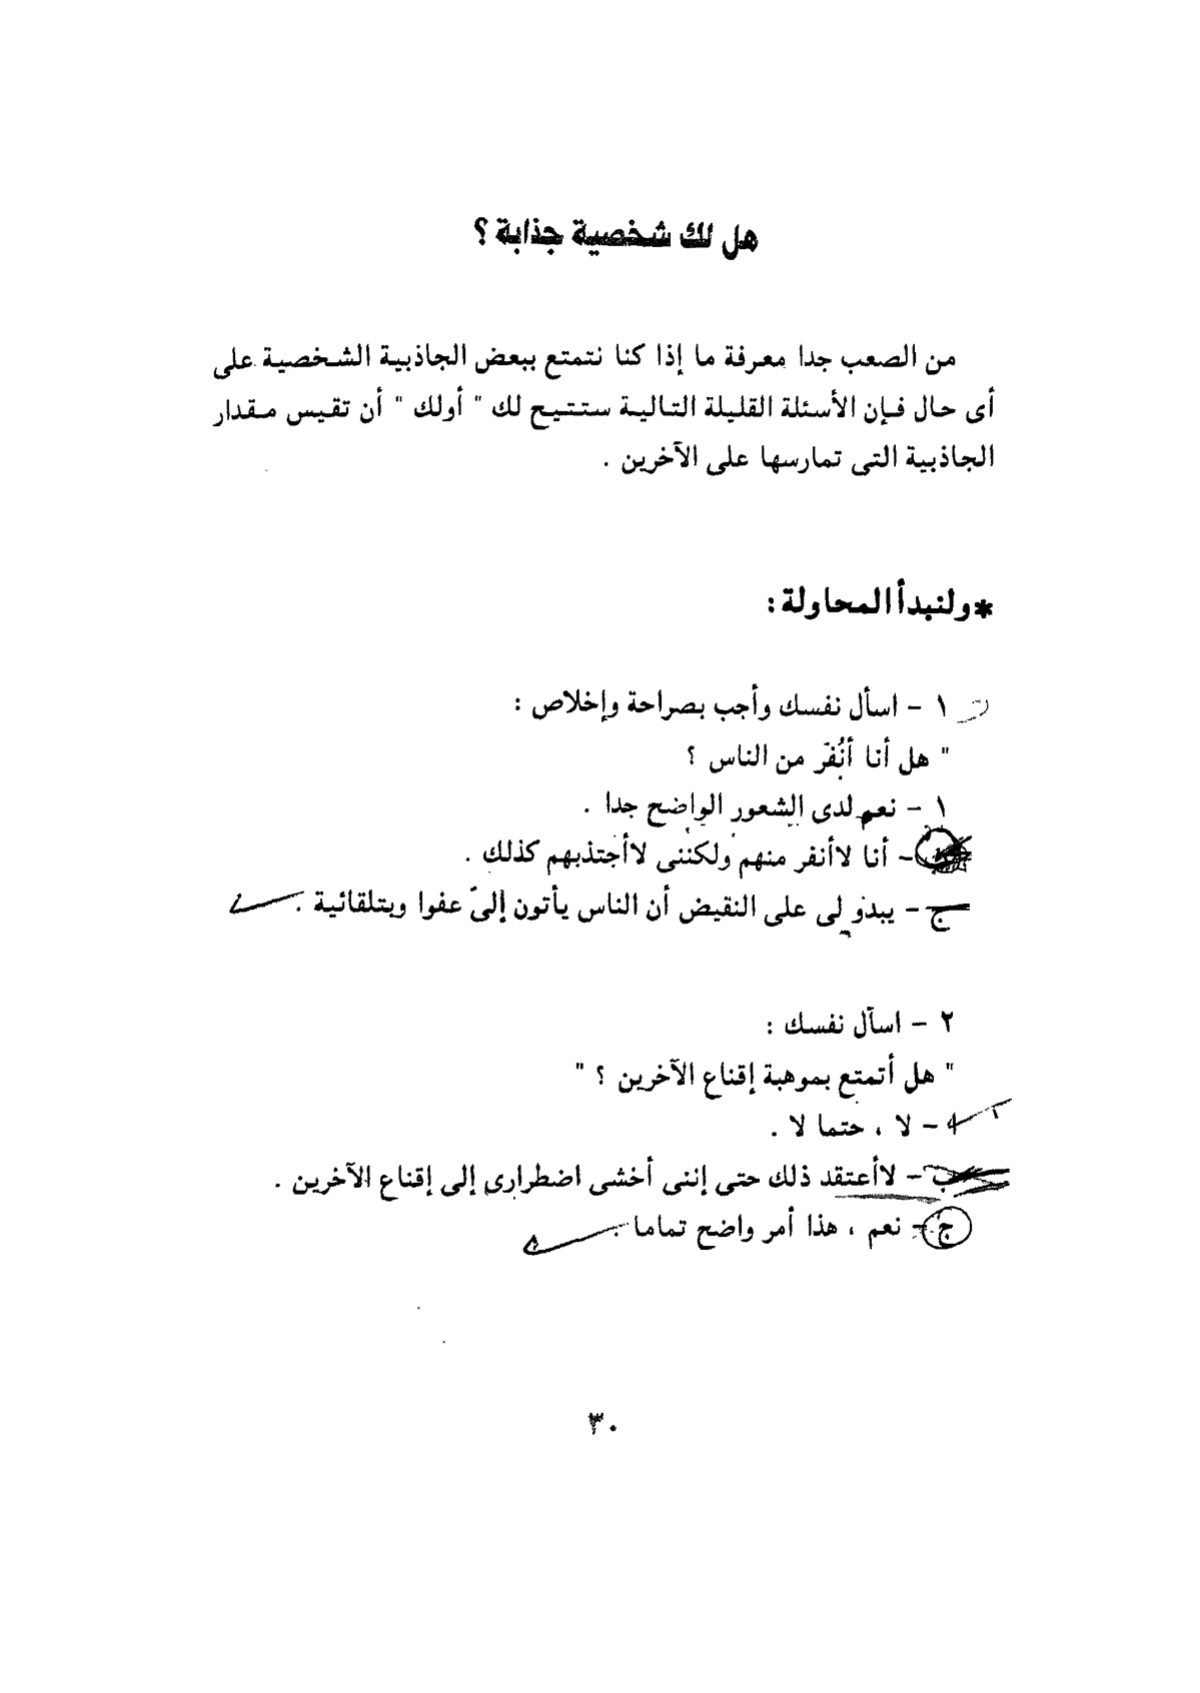 هل لك شخصية جذابة ؟
من الصعب جدا معرفة ما إذا كنا نتمتع ببعض الجاذبية الشخصية على
أى حال فإن الأسئلة القليلة التالية ستتيح لك " أولك " أن تقيس مقدار
الجاذبية التى تمارسها على الآخرين .
*ولنبدأ المحاولة :
١ - اسأل نفسك وأجب بصراحة وإخلاص :
" هل أنا أنُفر من الناس ؟
١ - نعم لدى الشعور الواضح جدا .
- أنا لاأنفر منهم ولكننى لاأجتذبهم كذلك .
ج - يبدو لى على النقيض أن الناس يأتون إلىّ عفوا وبتلقائية .
٢ - اسأل نفسك :
" هل أتمتع بموهبة إقناع الآخرين ؟ "
١ - لا ، حتما لا .
ب - لاأعتقد ذلك حتى إننى أخشى اضطرارى إلى إقناع الآخرين .
ج - نعم ، هذا أمر واضح تماما .
٣٠